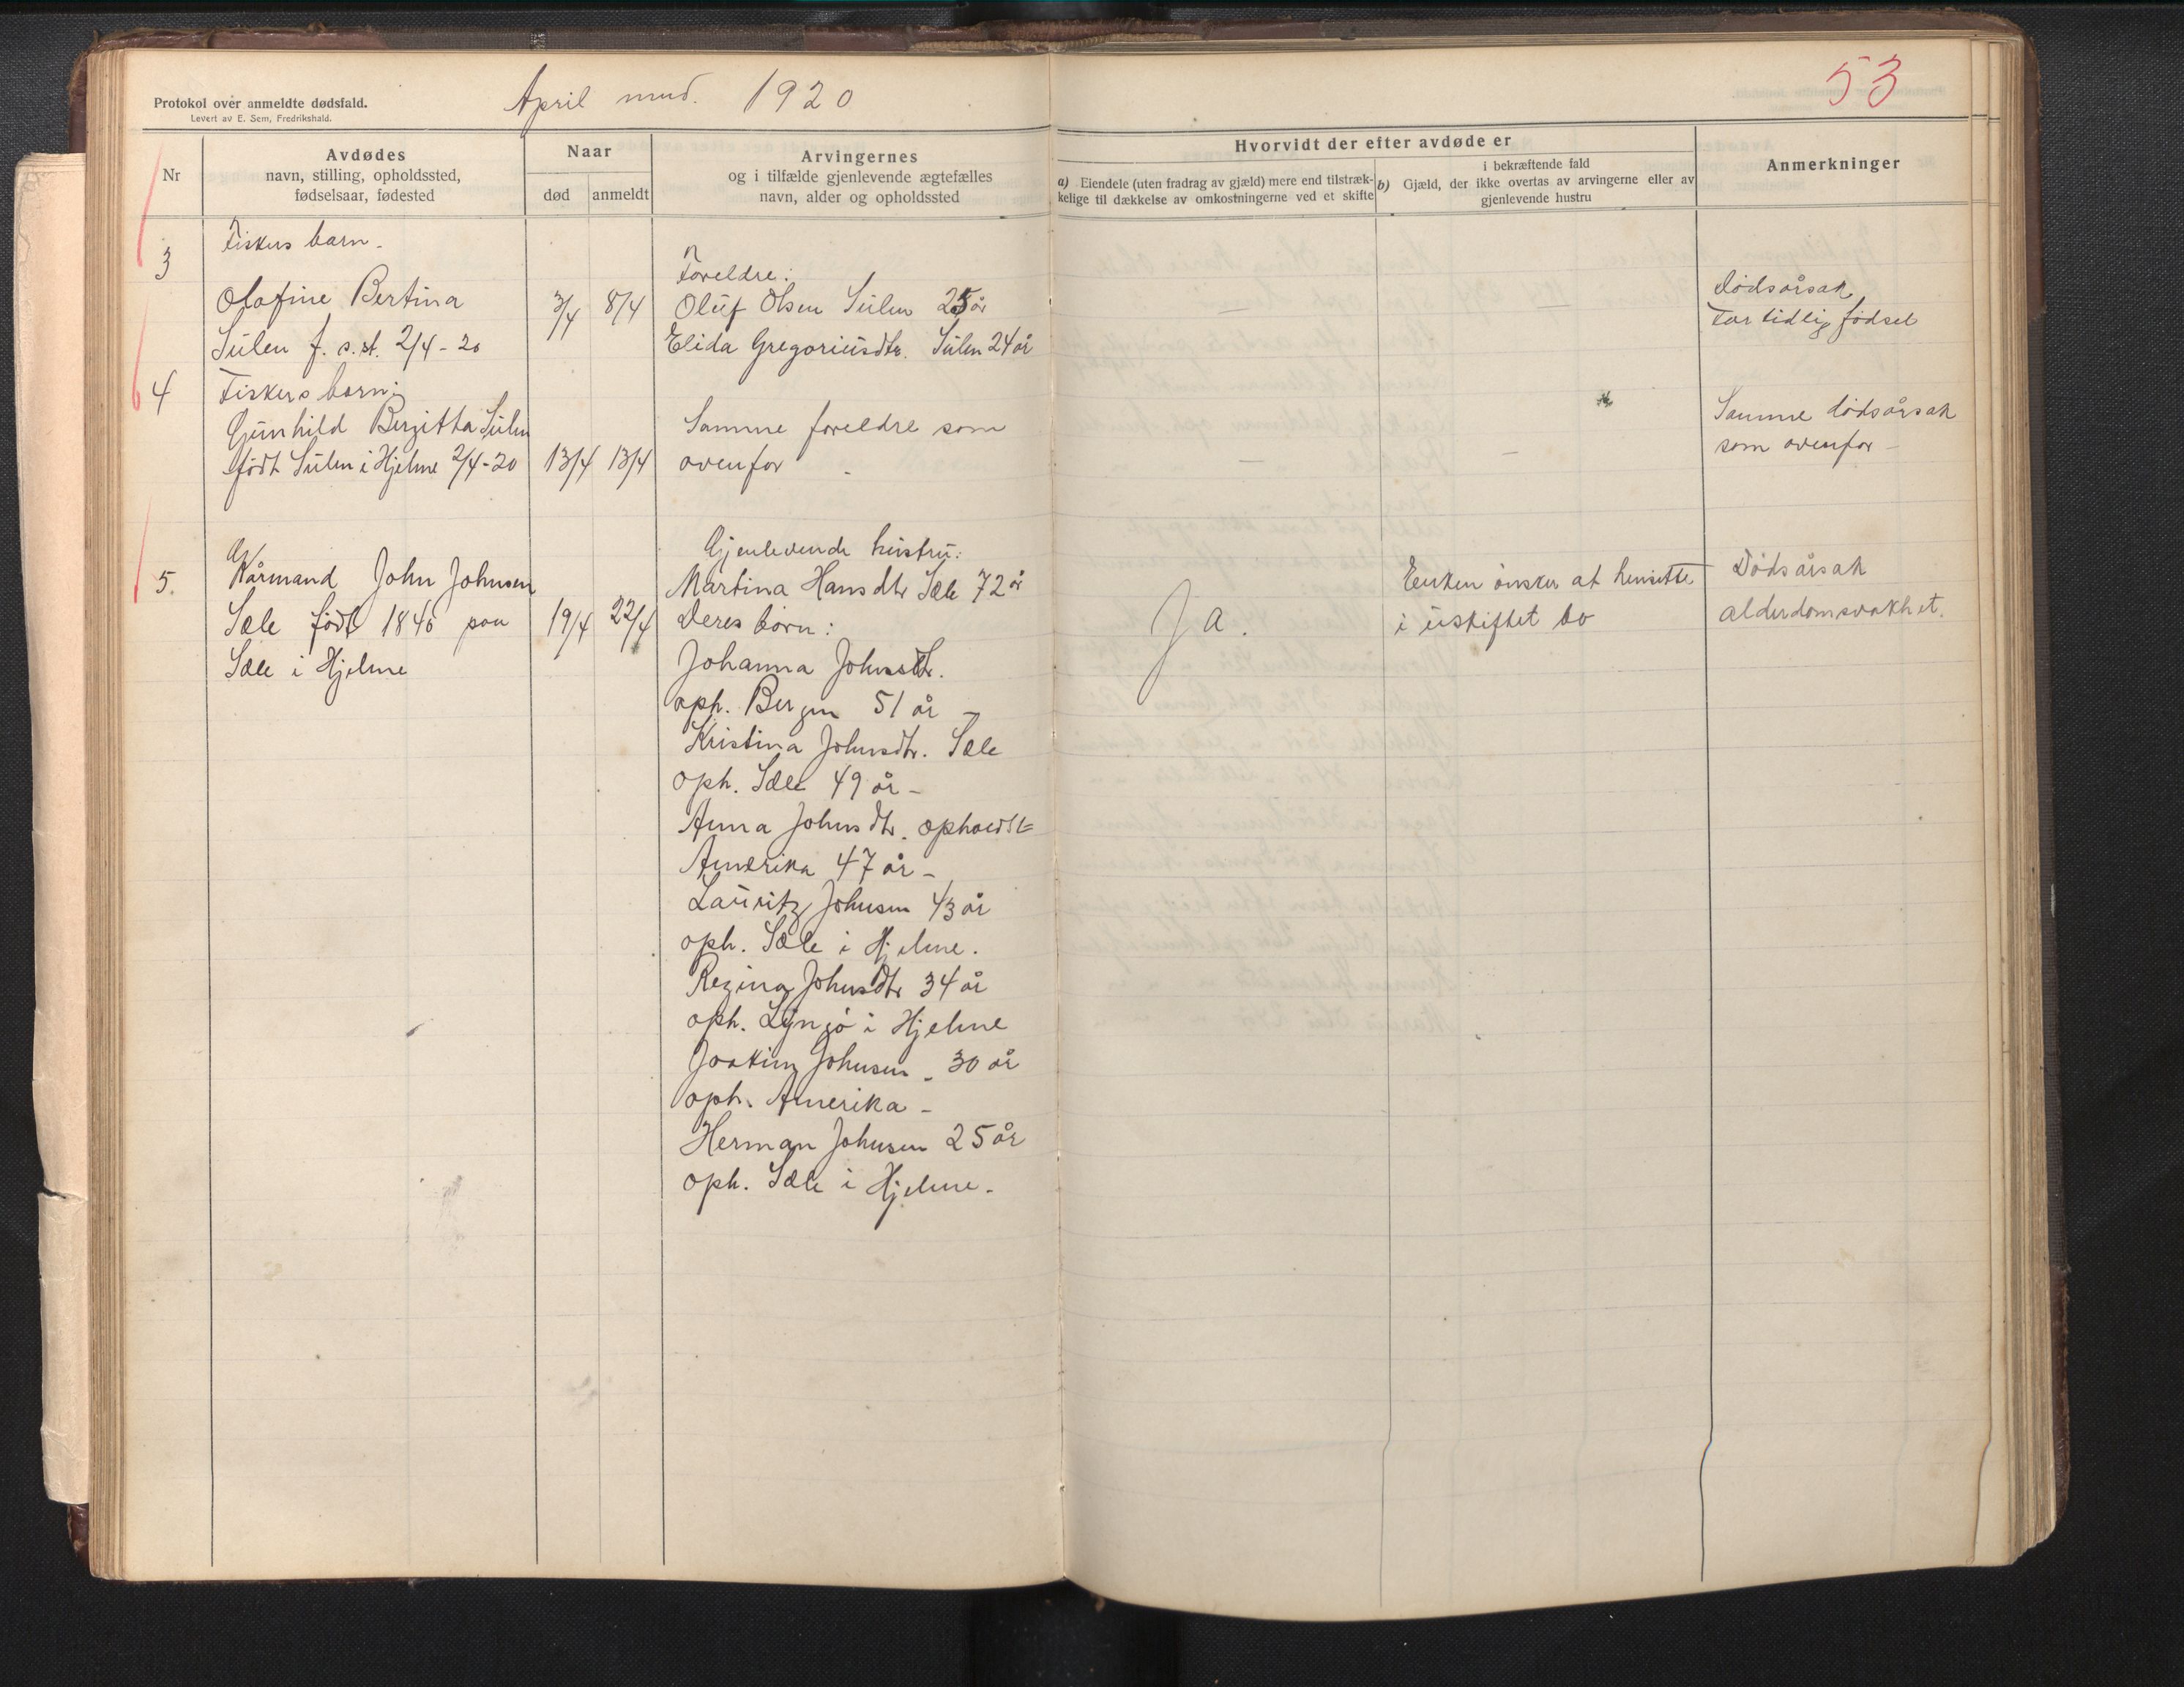 Protokol over anmeldte dødsfald.
Levert av E. Sem, Fredrikshald.
April mnd. 1920
53
Nr
Avdødes
navn, stilling, opholdssted,
fødselsaar, fødested
Naar
død
anmeldt
Arvingernes
og i tilfælde gjenlevende ægtefælles
navn, alder og opholdssted
Hvorvidt der efter avdøde er
a) Eiendele (uten fradrag av gjæld) mere end tilstræk-
kelige til dækkelse av omkostningerne ved et skifte
i bekræftende fald
b) Gjæld, der ikke overtas av arvingerne eller av
gjenlevende hustru
Anmerkninger
3
Fiskers barn.
Olafine Bertina
Sulen f. s. st. 2/4 - 20
3/4
8/4
Foreldre:
Oluf Olsen Sulen 25 år
Elida Gregoriusdtr. Sulen 24 år
—
—
Dødsårsak
For tidlig fødsel
4
Fiskers barn:
Gunhild Bergitta Sulen
født Sulen i Hjelme 2/4-20
13/4
13/4
Samme foreldre som
ovenfor
—
—
Samme dødsårsak
som ovenfor —
5.
Kårmand John Johnsen
Sæle født 1846 paa
Sæle i Hjelme
19/4
22/4
Gjenlevende hustru:
Martina Hansdtr Sæle 72 år
Deres børn:
Johanna Johnsdtr.
oph. Bergen 51 år —
Kristina Johnsdtr. Sæle
oph. Sæle 49 år —
Anna Johnsdtr. opholdst=
Amerika 47 år —
Lauritz Johnsen 43 år
oph. Sæle i Hjelme.
Regina Johnsdtr 34 år
oph. Lyngø i Hjelme
Joakim Johnsen - 30 år
oph. Amerika —
Herman Johnsen 25 år
oph. Sæle i Hjelme.
Ja.
Enken ønsker at hensitte
i uskiftet bo
Dødsårsak
alderdomsvakhet.